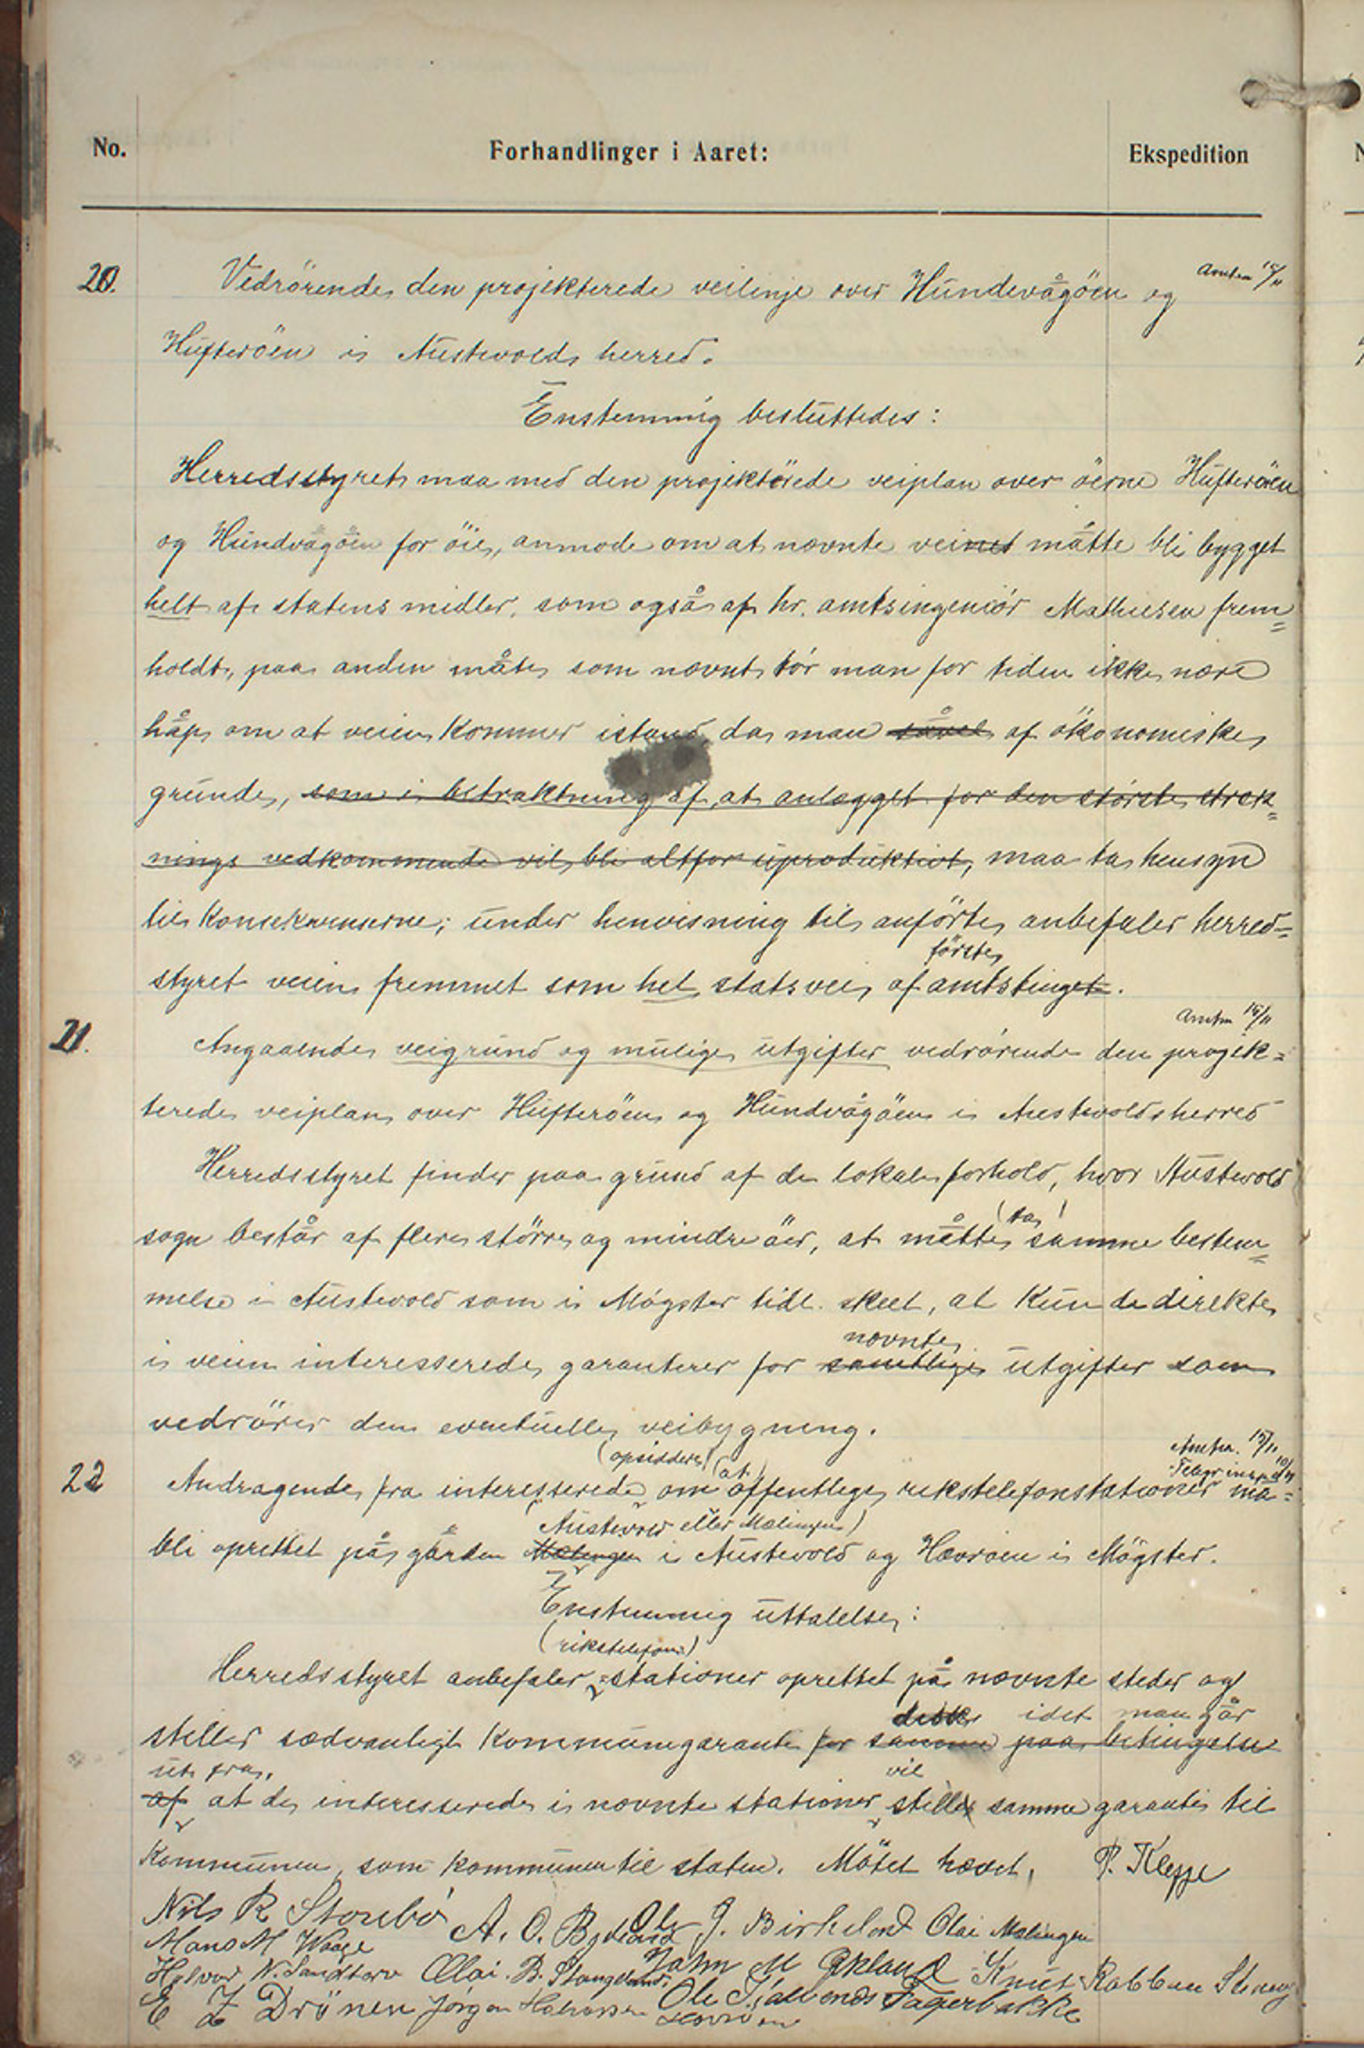 No. Forhandlinger i Aaret: Ekspedition
20. Vedrörende den projekterede veilinje over Hundevågöen og Amtm 15/11
Hufteröen i Austevold herred.
Enstemmig besluttedes:
Herredsstyret maa med den projekterede veiplan over öerne Hufteröen
og Hundvågöen for öie, anmode om at nævnte vei måtte bli bygget
helt af statens midler, som også af hr. amtsingeniör Mathiesen frem=
holdt, paa anden måte som nævnt tör man for tiden ikke nære
håp om at veien kommer istand da man såvel af ökonomiske
grunde, som i betraktning af, at anlægget for den störste stræk=
nings vedkommende vil bli altfor uproduktivt, maa ta hensyn
til konsekvenserne; under henvisning til anförte anbefaler herred=
förste
styret veien fremmet som hel statsvei af amtstinget.
Amtm 15/11
21. Angaaende veigrund og mulige utgifter vedrörende den projek=
terede veiplan over Hufteröen og Hundvågöen i Austevold herred
Herredsstyret finder paa grund af de lokale forhold, hvor Austevold
(ta)
sogn består af flere större og mindre öer, at måtte samme bestem=
melse i Austevold som i Mögster tidl. skeet, at kun de direkte
nævnte
i veien interesserede garanterer for samtlige utgifter som
vedrörer den eventuelle veibygning.
(opsiddere) (at) Amtm. 15/11
Telegr insp 10/11
22 Andragende fra interesserede om offentlige rikstelefonstationer må
(Austevold eller Mælingen)
bli oprettet på gården Mælingen i Austevold og Hævröen i Mögster.
Enstemmig uttalelse:
(rikstelefon)
Herredsstyret anbefaler =stationer oprettet på nævnte steder og
idet man går
stiller sædvanligt kommunegaranti for samme paa betingelse
ut fra, vil
af at de interesserede i nævnte stationer stille samme garanti til
kommunen, som kommunen til staten. Mötet hævet. P. Kleppe
Nils R Storebö A. O. Bjelland Ole J. Birkeland Olai Malingen
Mons M Waage John M Økland Knut Rabben
Halvor N. Sandtorv Olai B. Stangeland
E Z Drönen Jörgen Halvorsen Ole Fagerbakke